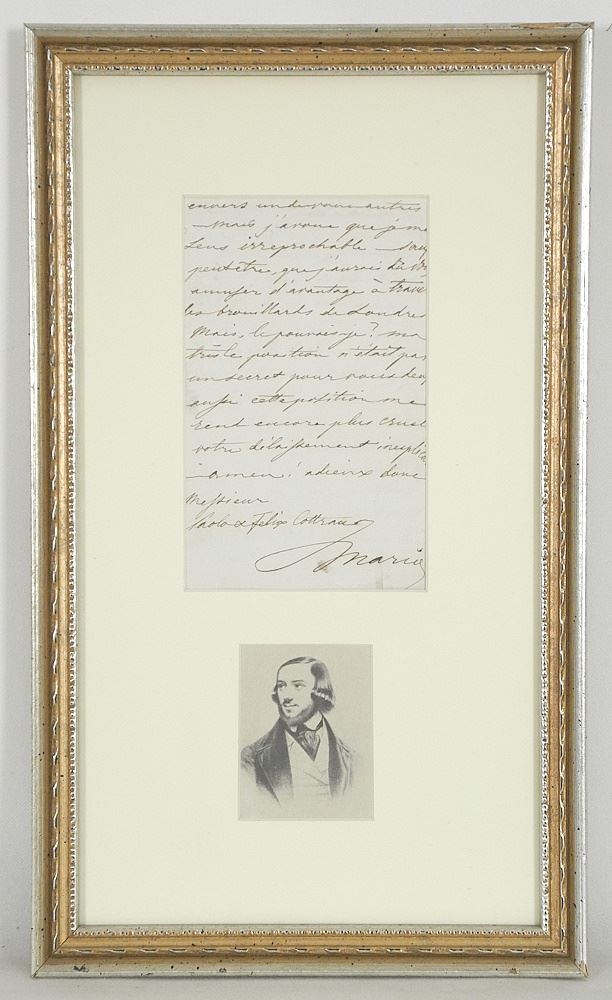 envers un de vous autres
— Mais j'avoue que je me
sens irreprochable —
peutetre, que j'aurois dû
amuser d'avantage à trave
les brouillards de Londres
Mais, le pouvais-je? ma
triste position n'était pas
un secret pour vous deux,
aussi cette position me
rend encore plus cruel
votre délaissement
— amen! adieux donc
Messieur
Paolo & Felix Cottrau
Mario